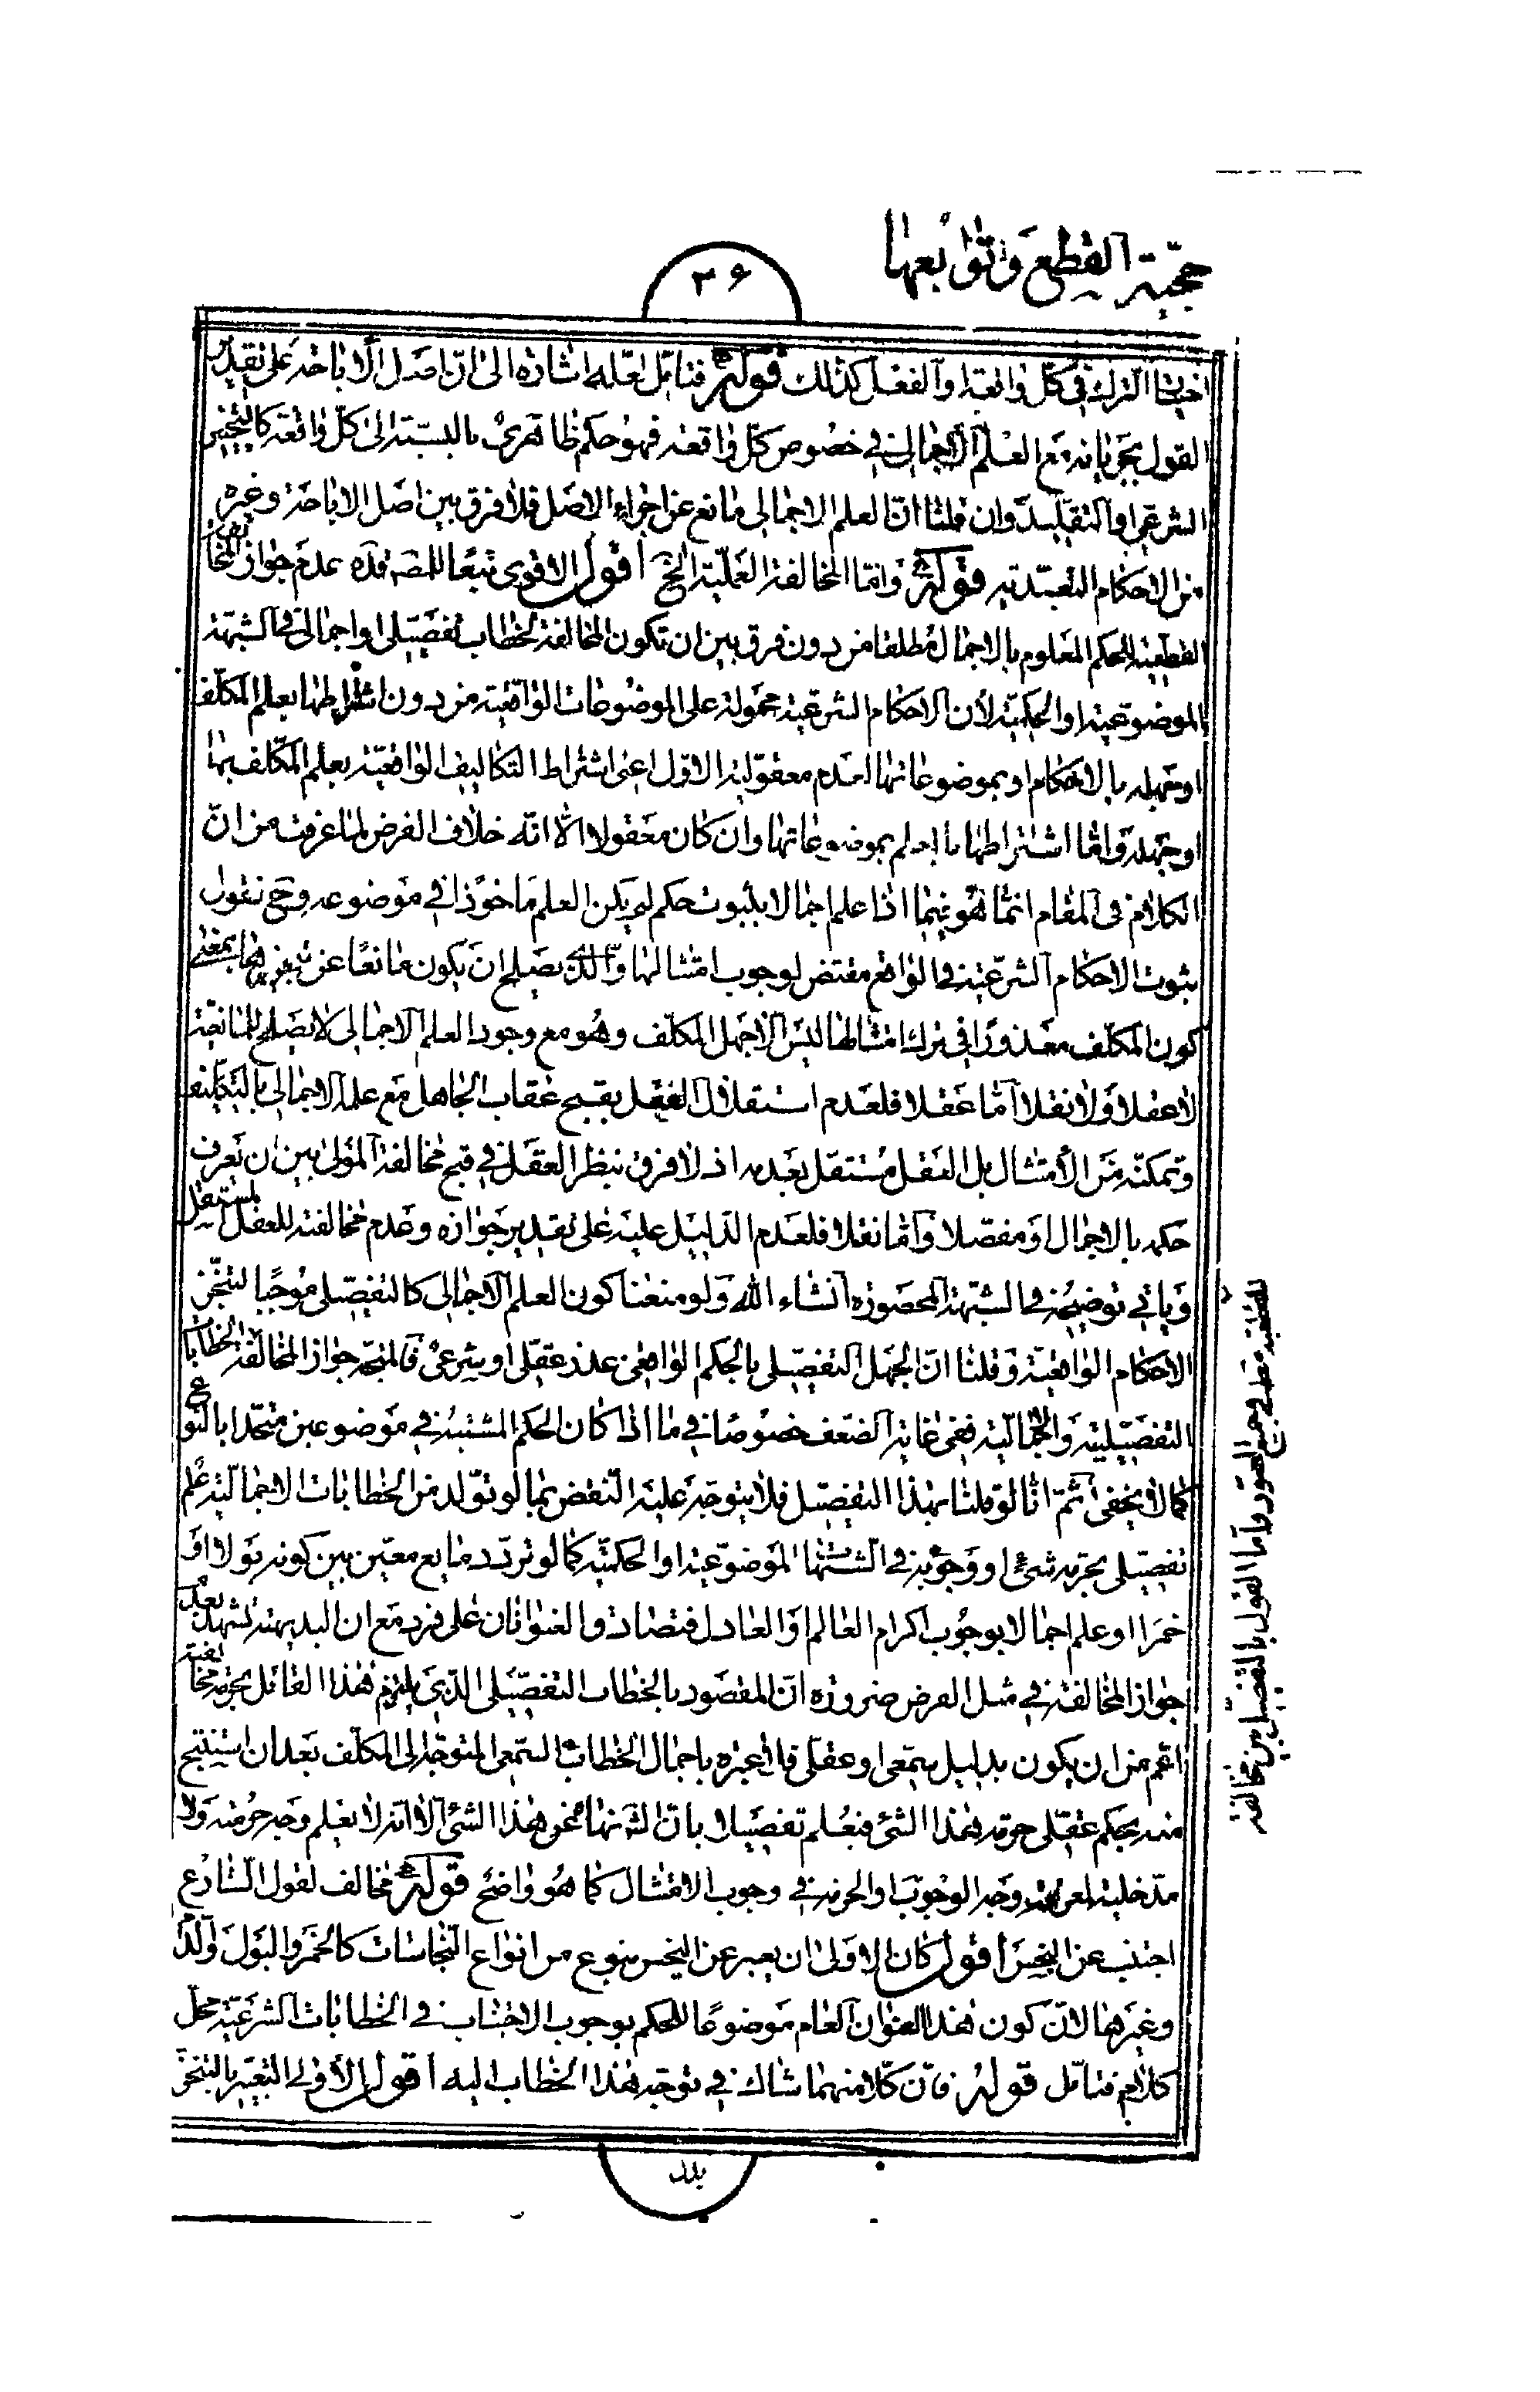 حجية القطع وتوابعها
٣۶
اختيار الترك في كل واقعة او الفعل كذلك قوله فتامل لعله اشارة الى ان اصل الاباحة على تقدير
القول بجريانه مع العلم الاجمالي في خصوص كل واقعة فهو حكم ظاهري بالنسبة الى كل واقعة كالتخيير
الشرعي او التقليد وان قلنا ان العلم الاجمالي مانع عن اجراء الاصل فلا فرق بين اصل الاباحة وغيره
من الاحكام التعبدية قوله واما المخالفة العملية الخ اقول الاقوى تبعا للمصه قده عدم جواز المخالفة
القطعية للحكم المعلوم بالاجمال مطلقا من دون فرق بين ان تكون المخالفة لخطاب تفصيلي او اجمالي في الشبهة
الموضوعية او الحكمية لان الاحكام الشرعية محمولة على الموضوعات الواقعية من دون اشتراطها بعلم المكلف
او جهله بالاحكام او بموضوعاتها لعدم معقولية الاول اعني اشتراط التكاليف الواقعية بعلم المكلف بها
او جهله واما اشتراطها بالعلم بموضوعاتها وان كان معقولا الا انه خلاف الفرض لما عرفت من ان
الكلام في المقام انما هو فيما اذا علم اجمالا بثبوت حكم لم يكن العلم ماخوذا في موضوعه وح نقول
ثبوت الاحكام الشرعية في الواقع مقتض لوجوب امتثالها والذي يصلح ان يكون مانعا عن تنجزها بمعنى
كون المكلف معذورا في ترك امتثالها ليس الا جهل المكلف وهو مع وجود العلم الاجمالي لا يصلح للمانعية
لا عقلا ولا نقلا اما عقلا فلعدم استقلال العقل بقبح عقاب الجاهل مع علمه الاجمالي بالتكليف
وتمكنه من الامتثال بل العقل مستقل بعدمه اذ لا فرق بنظر العقل في قبح مخالفة المولى بين ان تعرف
حكمه بالاجمال او مفصلا واما نقلا فلعدم الدليل عليه على تقدير جوازه وعدم مخالفته للعقل المستقل
وياتي توضيحه في الشبهة المحصورة انشاء الله ولو منعنا كون العلم الاجمالي كالتفصيلي موجبا لتنجز
الاحكام الواقعية وقلنا ان الجهل التفصيلي بالحكم الواقعي عذر عقلي او شرعي فالمتجه جواز المخالفة القطعية مطلقا في جميع الصور واما القول بالتفصيل بين مخالفة الخطابات
التفصيلية والاجمالية ففي غاية الضعف خصوصا في ما اذا كان الحكم المشتبه في موضوعين متحدا بالنوع
كما لا يخفى ثم انا لو قلنا بهذا التفصيل فلا يتوجه عليه النقض بما لو تولد من الخطابات الاجمالية علم
تفصيلي بحرمة شيء او وجوبه في الشبهات الموضوعية او الحكمية كما لو تردد مايع معين بين كونه بولا او
خمرا او علم اجمالا بوجوب اكرام العالم او العادل فتصادق العنوانان على فرد مع ان البديهة تشهد بعدم
جواز المخالفة في مثل الفرض ضرورة ان المقصود بالخطاب التفصيلي الذي يلتزم هذا القائل بحرمة مخالفته
اعم من ان يكون بدليل سمعي او عقلي فلا عبرة باجمال الخطاب السمعي المتوجه الى المكلف بعد ان استنتج
منه بحكم عقلي حرمة هذا الشيء فيعلم تفصيلا بان الله نهاه عن هذا الشيء الا انه لا يعلم وجه حرمته ولا
مدخلية لمعرفة وجه الوجوب او الحرمة في وجوب الامتثال كما هو واضح قوله مخالف لقول الشارع
اجتنب عن النجس اقول كان الاولى ان يعبر عن النجس بنوع من انواع النجاسات كالخمر والبول والدم
وغيرها لان كون هذا العنوان العام موضوعا للحكم بوجوب الاجتناب في الخطابات الشرعية محل
كلام فتامل قوله فان كلا منهما شاك في توجه هذا الخطاب اليه اقول الاولى التعبير بالتنجز
بدل